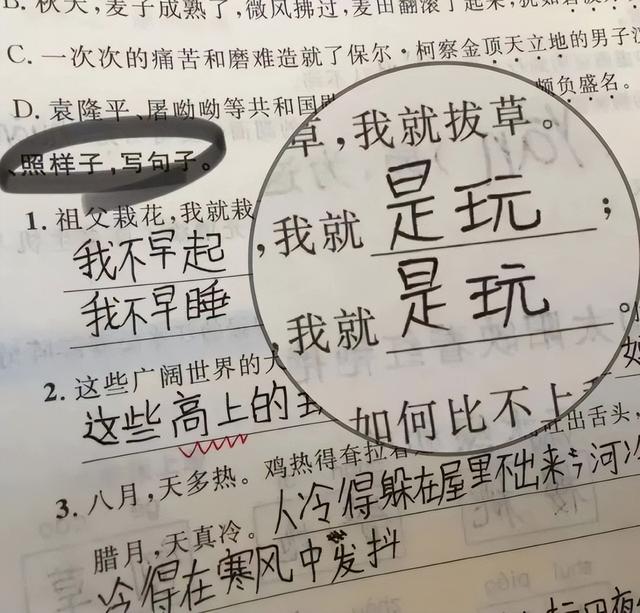 B. 秋天，麦子成熟了，微风拂过，麦田翻滚了起来，犹如
C. 一次次的痛苦和磨难造就了保尔·柯察金顶天立地的男子
D. 袁隆平、屠呦呦等共和国 颇负盛名。
照样子，写句子。
草，我就拔草。
1. 祖父栽花，我就栽
我不早起 ，我就是玩；
我不早睡 ，我就是玩。
2. 这些广阔世界的 如何比不上
这些高上的
3. 八月，天多热。鸡热得耷拉着 吐出舌头，
腊月，天真冷。人冷得躲在屋里不出来
冷得在寒风中发抖